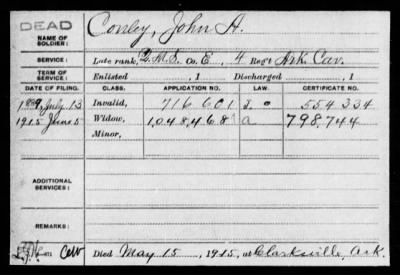 DEAD
NAME OF SOLDIER: Conley, John H.
SERVICE: Late rank, Q.M.S. Co. E, 4 Reg't Ark. Cav.
TERM OF SERVICE: Enlisted , 1 Discharged , 1
DATE OF FILING. CLASS. APPLICATION NO. LAW. CERTIFICATE NO.
1889, July 13 Invalid, 716 601 554 334
1915 June 5 Widow, 1,048,468 a 798,744
Minor,
ADDITIONAL SERVICES:
REMARKS:
Died May 15, 1915, at Clarksville, Ark.